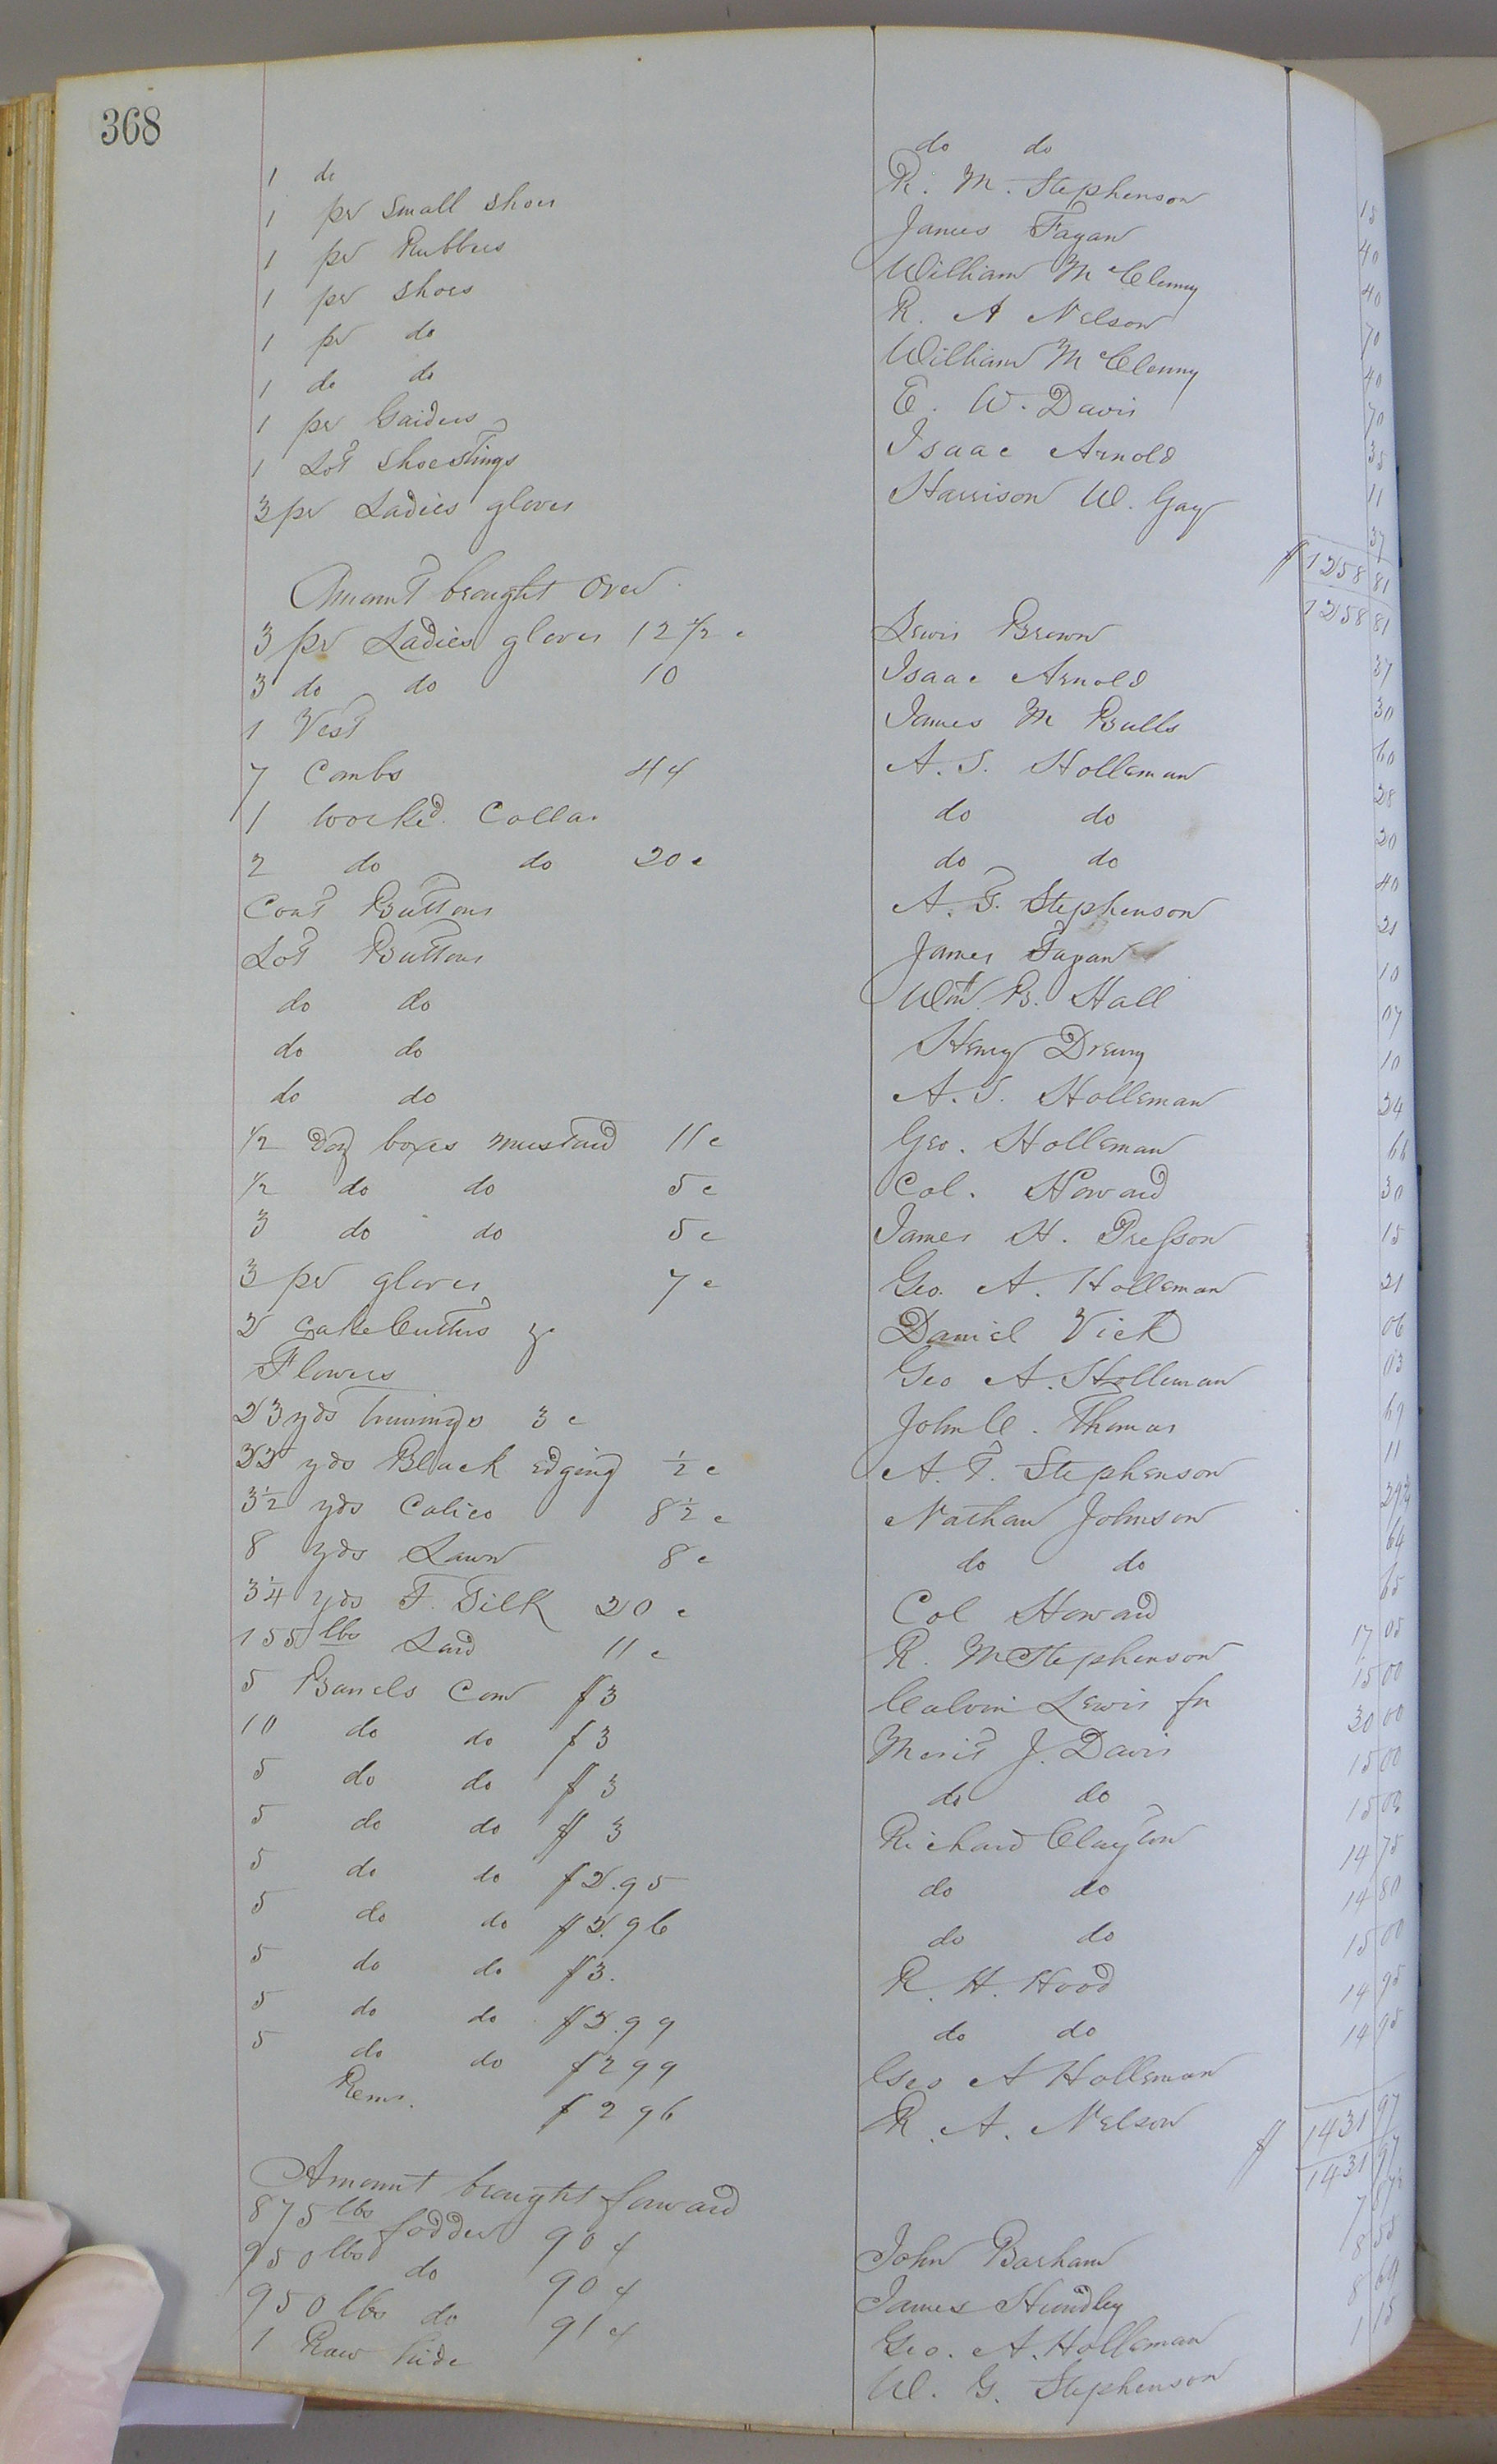 368
1 do do do 15
1 pr small shoes R. M. Stephenson 40
1 pr Rubbers James Fagan 40
1 pr shoes William McClenny 70
1 pr do R. A Nelson 40
1 do do William McClenny 70
1 pr Gaiders E. W. Davis 35
1 Lot Shoestings Isaac Arnold 11
3 pr Ladies gloves Harrison W. Gay 37
$ 1258 81
Amount brought over 1258 81
3 pr Ladies gloves 12 1/2 c Lewis Brown 37
3 do do 10 Isaac Arnold 30
1 Vest James M Bulls 60
7 Combs 4 4 A. S. Holleman 28
1 worked Collar do do 20
2 do do 20 c do do 40
Coat Buttons A. T. Stephenson 21
Lot Buttons James Fagan 10
do do Wm B. Hall 07
do do Henry Drewry 10
do do A. S. Holleman 34
1/2 doz boxes mustard 11 c Geo. Holleman 66
1/2 do do 5 c Col. Howard 30
3 do do 5 c James H. Presson 15
3 pr gloves 7 c Geo. A. Holleman 21
2 Cake Cutters Daniel Vick 06
Flowers Geo A. Holleman 03
23 yds Trimings 3 c John C. Thomas 69
22 yds Black edging 1/2 c A. T. Stephenson 11
3 1/2 yds Calico 8 1/2 c Nathan Johnson 29 3/4
8 yds Lawn 8 c do do 64
3 1/4 yds F. Silk 20 c Col Howard 65
155 lbs Lard 11 c R. M Stephenson 17 05
5 Barrels Corn $3 Calvin Lewis Jr 15 00
10 do do $3 Merit J. Davis 30 00
5 do do $3 do do 15 00
5 do do $3 Richard Clayton 15 00
5 do do $2.95 do do 14 75
5 do do $2.96 do do 14 80
5 do do $3. R. H. Hood 15 00
5 do do $2.99 do do 14 95
5 do do $2 99 Geo A Holleman 14 95
Rems. $2 96 R. A. Nelson
$ 1431 97
Amount brought forward 1431 97
875 lbs fodder 90 c John Barham 7 87 1/2
950 lbs do 90 c James Hundley 8 55
950 lbs do 91 c Geo. A. Holleman 8 64
1 Raw hide W. G. Stephenson 1 15